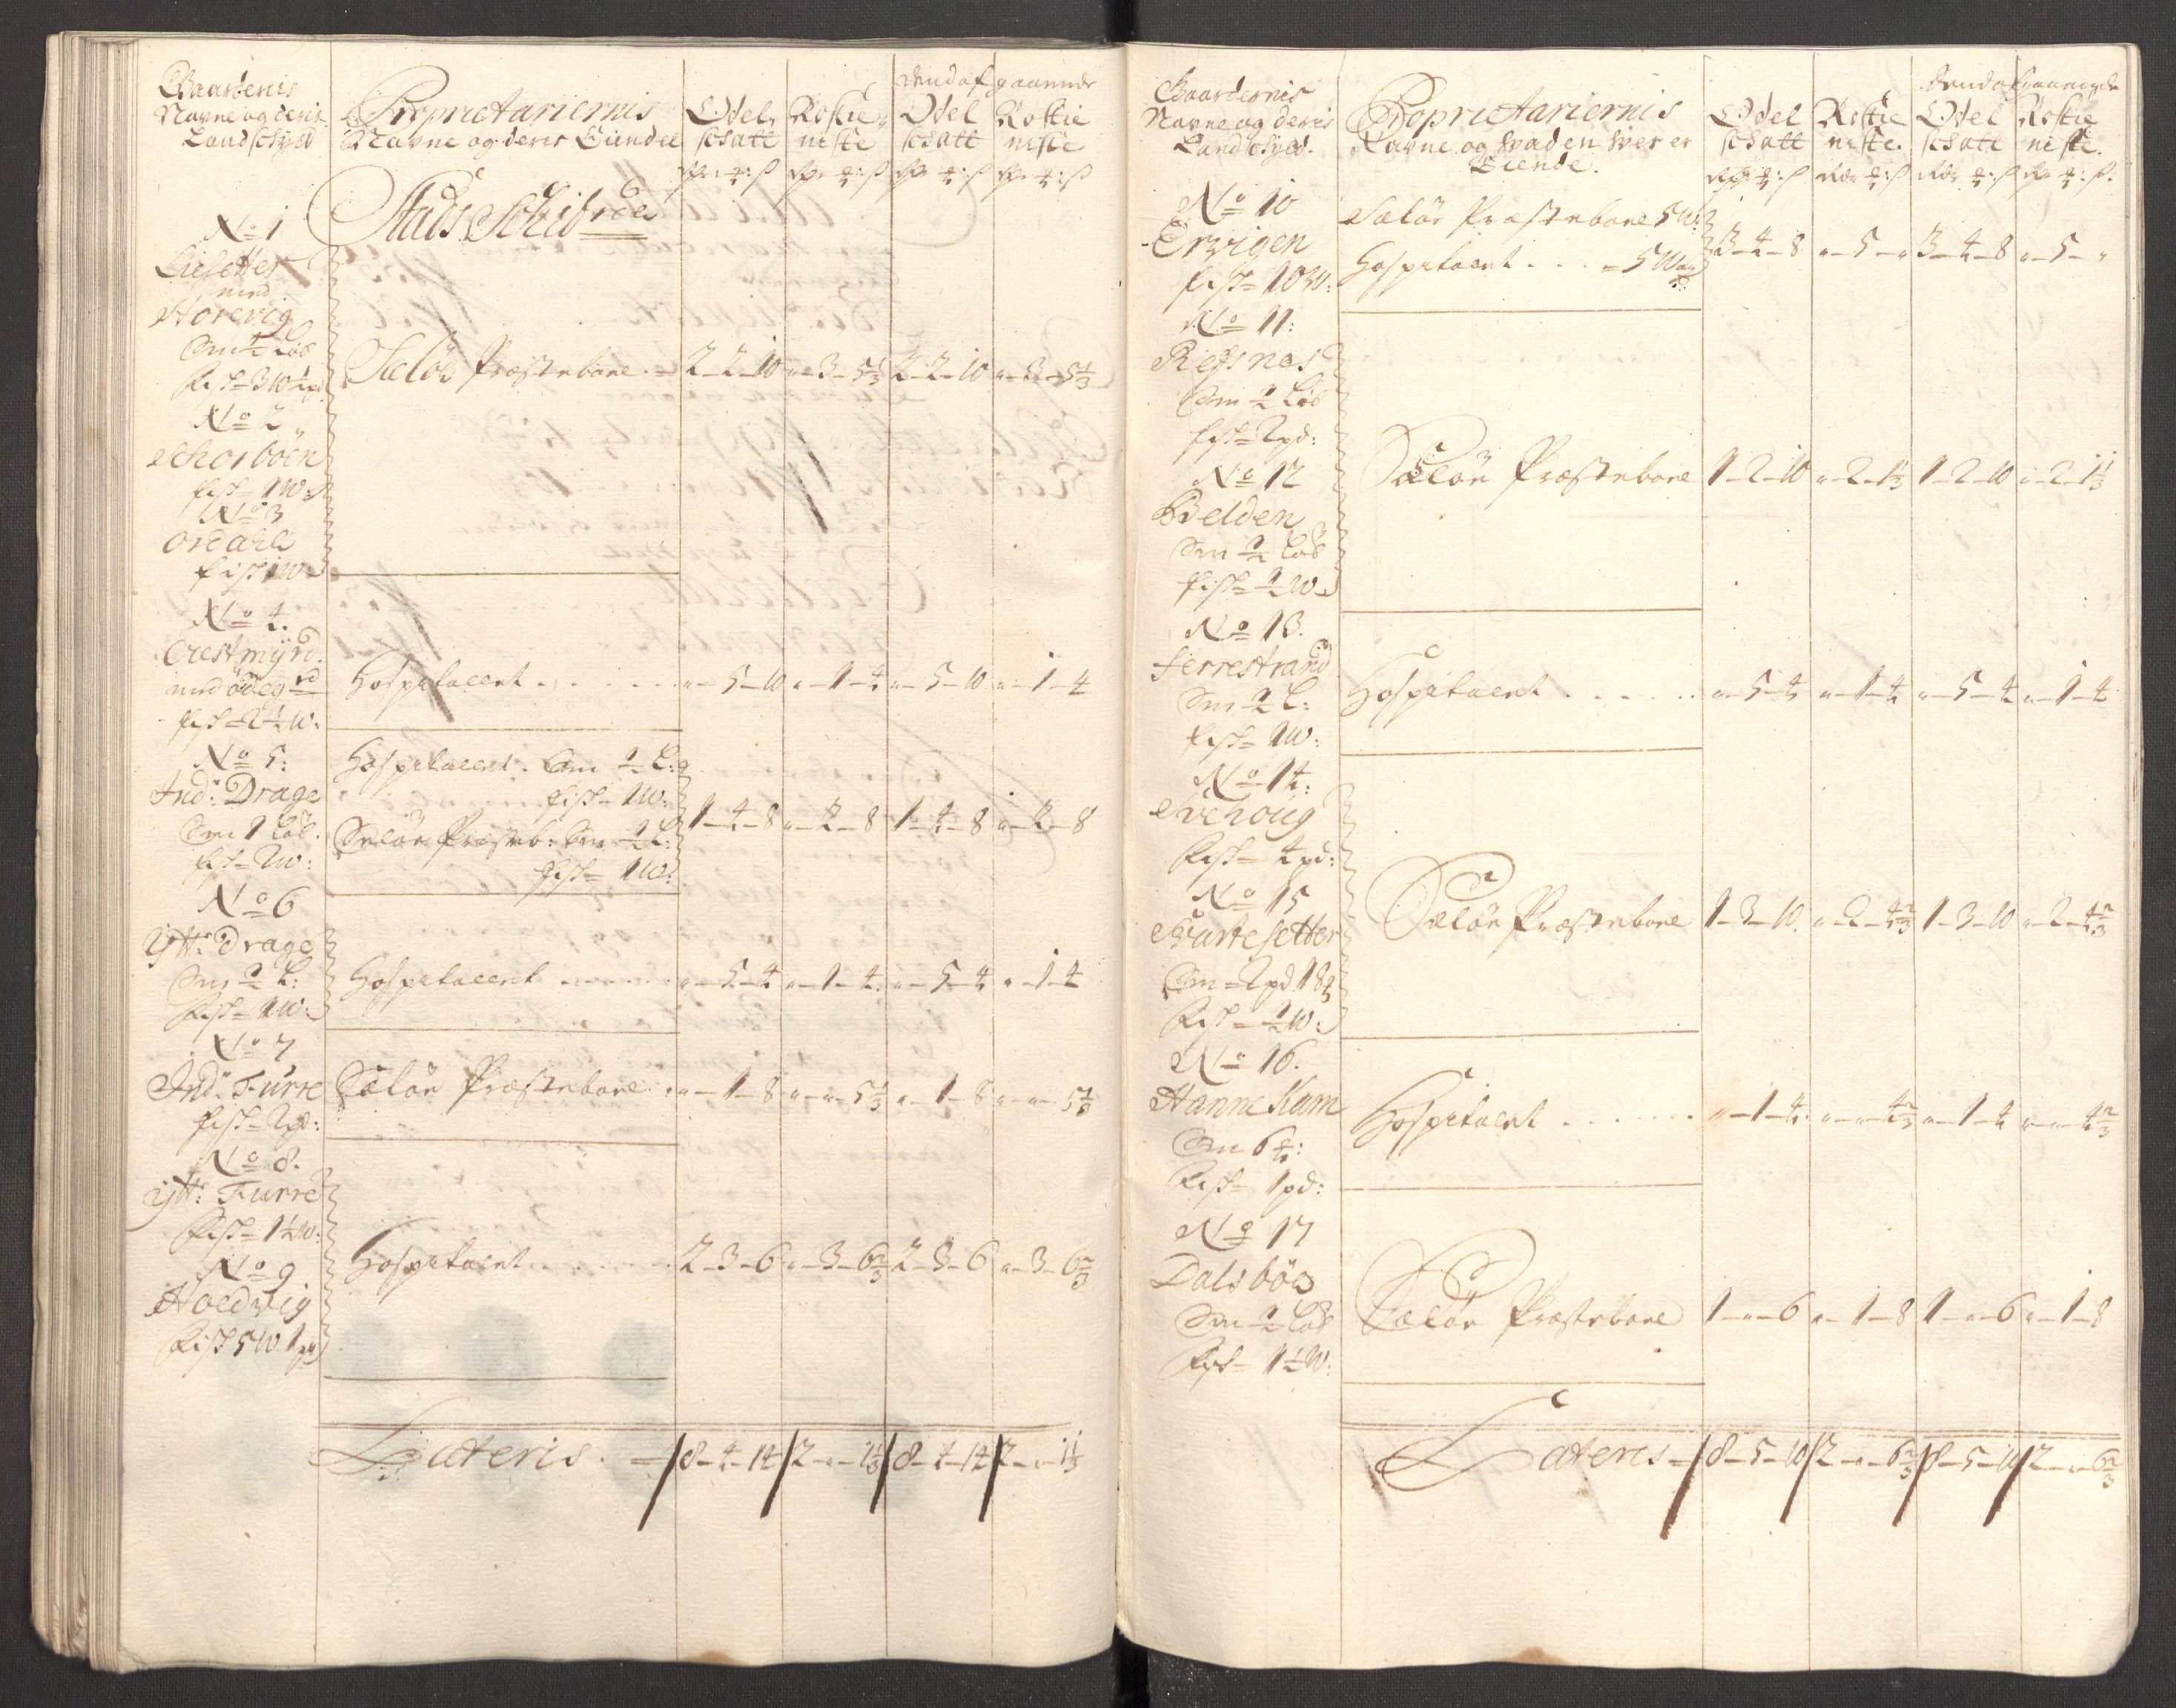 Gaardenis
Navne og deris
Landschyld
Proprietariernis
Navne og deris Eiendel
Odel
schatt
Rostie
niste
dend afgaaende
Odel
schatt
Rostie
niste
Stads Schibrede
No 1
Liesetter
med
Storevig
Sm 1/2 Löb
Fisk 3 W 1 pd
Sælör Præstebore
2-2-10
"-3-5 1/3
2-2-10
"-3-5 1/3
No 2
Schorböen
fisk 1 W
No 3
Ordahl
fisk 1 W
No 4.
Crestmÿrd.
med ödeg rd
fisk 2 1/2 W:
Hospitalet
"-5-10
"-1-4
"-5-10
"-1-4
No 5:
Ind: Drage
Sm 1 Löb.
fisk 2 W:
Hospitalet. Sm 1/2 L:
fisk 1 W:
Sælör Præsteb: Sm 1/2 L:
fisk 1 W:
1-4-8
"-2-8
1-4-8
"-2-8
No 6
Ytt: Drage
Sm 1/2 L:
Fisk 1 W:
Hospitalet
"-5-4
"-1-4
"-5-4
"-1-4
No 7
Ind: Furre
fisk 2 pd:
Sælör Præstebore
"-1-8
"-"-5 1/3
"-1-8
"-"-5 1/3
No 8.
ytt: Furre
Fisk 1 1/2 W:
No 9
Hoedvig
Fisk 5 W 1 pd
Hospitalet
2-3-6
"-3-6 2/3
2-3-6
"-3-6 2/3
Lateris
8-4-14
2-"-1 1/3
8-4-14
2-"-1 1/3
Gaardernis
Navne og deris
Landschyld.
Proprietariernis
Navne og hvad en hver er
Eiende.
Odel
schatt
Rostie
niste.
dend afgaaende
Odel
schatt
Rostie
niste.
No 10
Ervigen
fisk 10 W:
Sælör Præstebore 5 W:
Hospitalet 5 W
3-4-8
"-5-"
3-4-8
"-5-"
No 11:
Refsnes
Sm 1/2 Löb
fisk 2 pd:
No 12
Belden
Sm 1/2 Löb
fisk 1/2 W
Sælör Præstebore
1-2-10
"-2-1 1/3
1-2-10
"-2-1 1/3
No 13.
ferrestrand
Sm 1/2 L:
fisk 1 W:
Hospitalet
"-5-4
"-1-4
"-5-4
"-1-4
No 14:
Svehoug
Fisk 4 pd:
No 15
Svartesetter
Sm 2 pd 18
Fisk 1/2 W:
Sælör Præstebore
1-3-10
"-2-4 2/3
1-3-10
"-2-4 2/3
No 16.
HanneKam
Sm 6
Fisk 1 pd:
Hospitalet
"-1-4
"-"-4 2/3
"-1-4
"-"-4 2/3
No 17
Dalsböe
Sm 1/2 Löb
Fisk 1 1/2 W:
Sælör Præstebore
1-"-6
"-1-8
1-"-6
"-1-8
Lateris
8-5-10
2-"-6 2/3
8-5-10
2-"-6 2/3